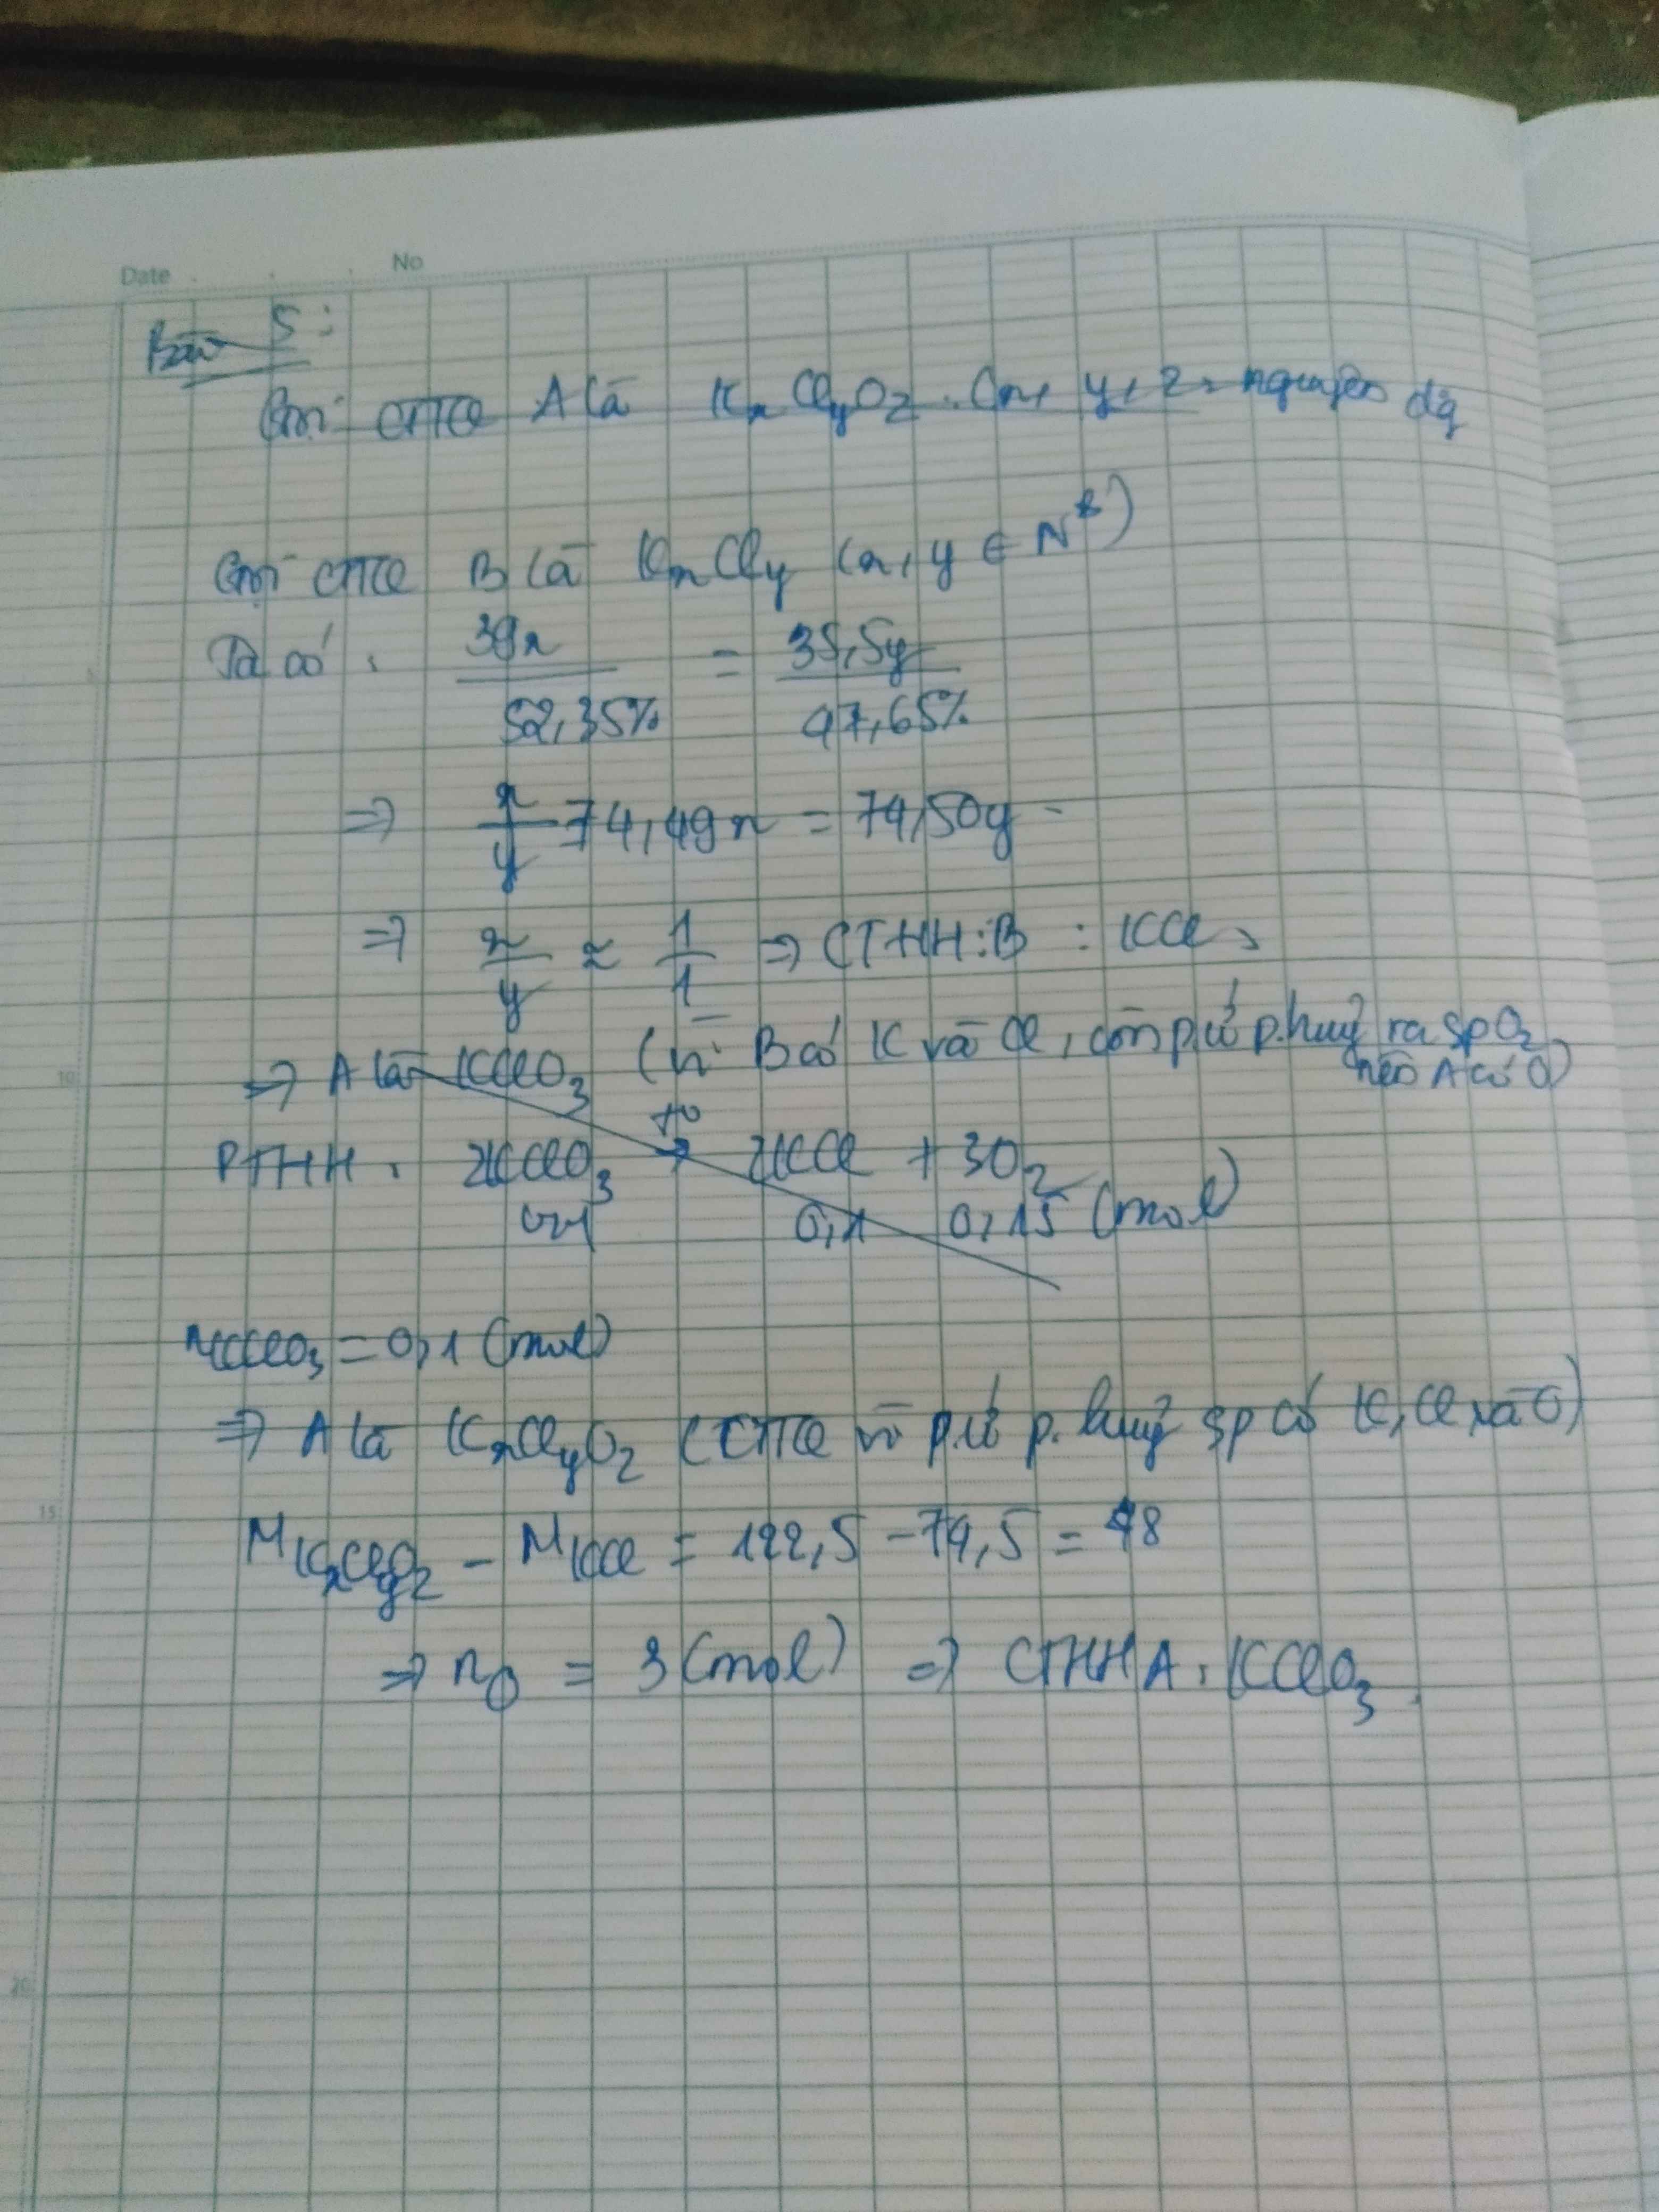 Date No
Bài 5:
Gọi CTTQ A là KxClyOz (x, y, z nguyên dg
Gọi CTTQ B là KxCly (x, y ∈ N*)
Ta có: 39x / 52,35% = 35,5y / 47,65%
=> x/y = 74,49x = 74,50y
=> x/y ≈ 1/1 => CTHH: B : KCl
=> A là KClO3 (vì B có K và Cl, còn p.ứ p.huỷ ra sp O2
nên A có O)
PTHH: 2KClO3 t° → 2KCl + 3O2
0,1 0,1 0,15 (mol)
nKClO3 = 0,1 (mol)
=> A là KxClyOz (CTTQ vì p.ứ p.huỷ sp có K, Cl và O)
MKxClyOz - MKCl = 122,5 - 74,5 = 48
=> nO = 3 (mol) => CTHH A: KClO3
5
10
15
20